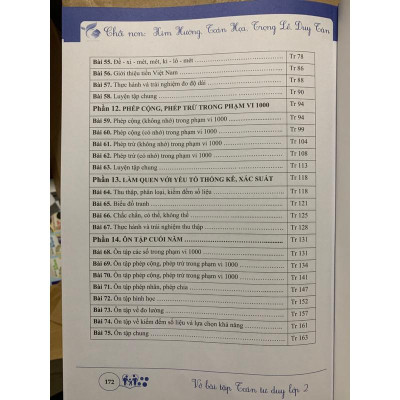 Chủ non: Kim Hương, Toán Họa, Trọng Lê Duy Tân
Bài 55. Đề - xi - mét, mét, ki - lô - mét Tr 78
Bài 56. Giới thiệu tiền Việt Nam Tr 86
Bài 57. Thực hành và trải nghiệm đo độ dài Tr 88
Bài 58. Luyện tập chung Tr 90
Phần 12. PHÉP CỘNG, PHÉP TRỪ TRONG PHẠM VI 1000 Tr 94
Bài 59. Phép cộng (không nhớ) trong phạm vi 1000 Tr 94
Bài 60. Phép cộng (có nhớ) trong phạm vi 1000 Tr 99
Bài 61. Phép trừ (không nhớ) trong phạm vi 1000 Tr 104
Bài 62. Phép trừ (có nhớ) trong phạm vi 1000 Tr 108
Bài 63. Luyện tập chung Tr 113
Phần 13. LÀM QUEN VỚI YẾU TỐ THỐNG KÊ, XÁC SUẤT Tr 118
Bài 64. Thu thập, phân loại, kiểm đếm số liệu Tr 118
Bài 65. Biểu đồ tranh Tr 121
Bài 66. Chắc chắn, có thể, không thể Tr 125
Bài 67. Thực hành và trải nghiệm thu thập Tr 128
Phần 14. ÔN TẬP CUỐI NĂM Tr 131
Bài 68. Ôn tập các số trong phạm vi 1000 Tr 131
Bài 69. Ôn tập phép cộng, phép trừ trong phạm vi 1000 Tr 134
Bài 70. Ôn tập phép cộng, phép trừ trong phạm vi 1000 Tr 141
Bài 71. Ôn tập phép nhân, phép chia Tr 147
Bài 72. Ôn tập hình học Tr 152
Bài 73. Ôn tập về đo lường Tr 157
Bài 74. Ôn tập về kiểm đếm số liệu và lựa chọn khả năng Tr 161
Bài 75. Ôn tập chung Tr 163
172
Vở bài tập Toán tư duy lớp 2